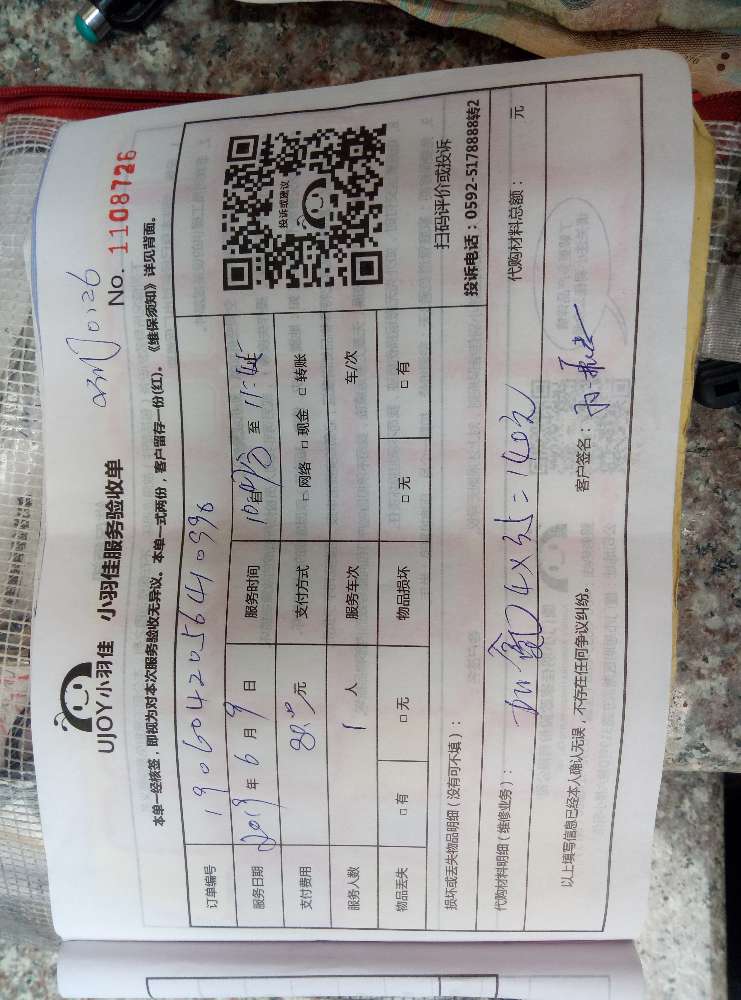 UJOY小羽佳 小羽佳服务验收单
No. 1108726
本单一经核签，即视为对本次服务验收无异议。本单一式两份，客户留存一份(红)。《维保须知》详见背面。
订单编号 190604205641039
服务日期 2019 年 6 月 9 日 服务时间 至
支付费用 元 支付方式 □网络 □现金 □转账
服务人数 1 人 服务车次 车/次
物品丢失 □有 □无 物品损坏 □无 □有
投诉或建议
扫码评价或投诉
投诉电话：0592-5178888转2
损坏或丢失物品明细（没有可不填）：
代购材料明细（维修业务）： 加氟 4×35=140元 代购材料总额： 元
以上填写信息已经本人确认无误，不存在任何争议纠纷。 客户签名：